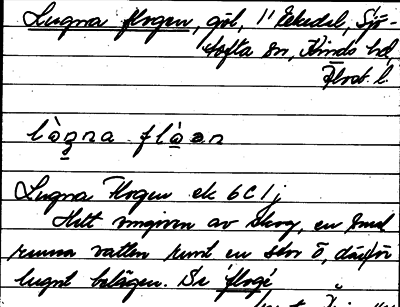 Lugna flogen, göl, i Ekedal, Sjö-
tofta sn, Kinds hd,
Älvsb. l.
lò̱g̱na flò̱ǝn
Lugna Flogen ek 6C1j
Helt omgiven av skog, en smal
remsa vatten runt en stor ö, därför
lugnt belägen. Se flogé